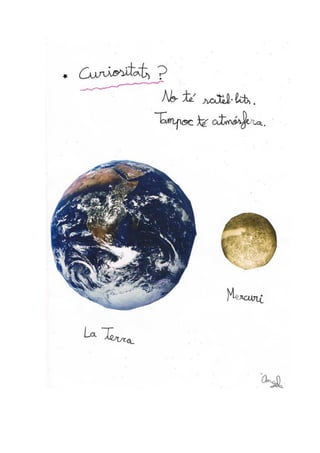 • Curiositats?
No té satel·lits.
Tampoc té atmósfera.
Mercuri
La Terra